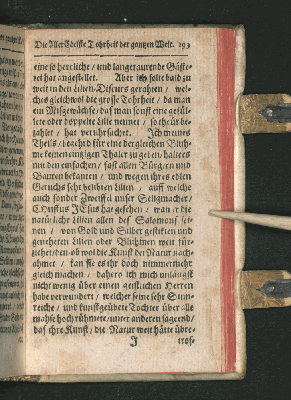 Die Aller Edelste Tohrheit der gantzen Welt. 193
eine so herrliche / und langetaurende Gäste-
rei hat angestellet. Aber ich solte bald zu
weit in den Lilien-Discurs gerahten / wel-
ches gleichwol die große Tohrheit / da man
ein Misgewächse / das man sonst eine gefül-
lete oder doppelte Lilie nennet / so theür be-
zahlet / hat veruhrsachet. Ich meines
Theils / begehre für eine dergleichen Bluh-
me keinen einigen Thaler zu geben / halte es
mit den einfachen / fast allen Bürgen und
Bauren bekanten / und wegen ihres edlen
Geruchs sehr beliebten Lilien / auff welche
auch sonder Zweiffel unser Seligmacher /
Christus JEsus hat gesehen / wan er die
natürliche Lilien allen des Salomons sei-
nen / von Gold und Silber gestikten und
geneheten Lilien oder Bluhmen weit für-
ziehet / den / ob wol die Kunst der Natur nach-
ahmet / kan sie es ihr doch nimmermehr
gleich machen / dahero ich mich unlängst
nicht wenig über einen geistlichen Herren
habe verwundert / welcher seine sehr Sinn-
reiche / und kunstgeübete Tochter über alle
mahsse hoch rühmete / unter anderen sagend /
das ihre Kunst / die Natur weit hätte über-
J trof-